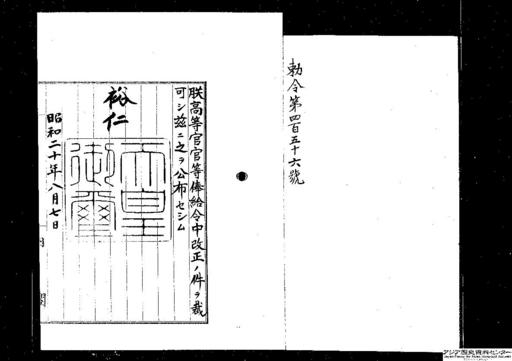 勅令第四百五十六號
朕高等官官等俸給令中改正ノ件ヲ裁
可シ茲ニ之ヲ公布セシム
裕仁
天皇
御璽
昭和二十年八月七日
内
閣
アジア歴史資料センター